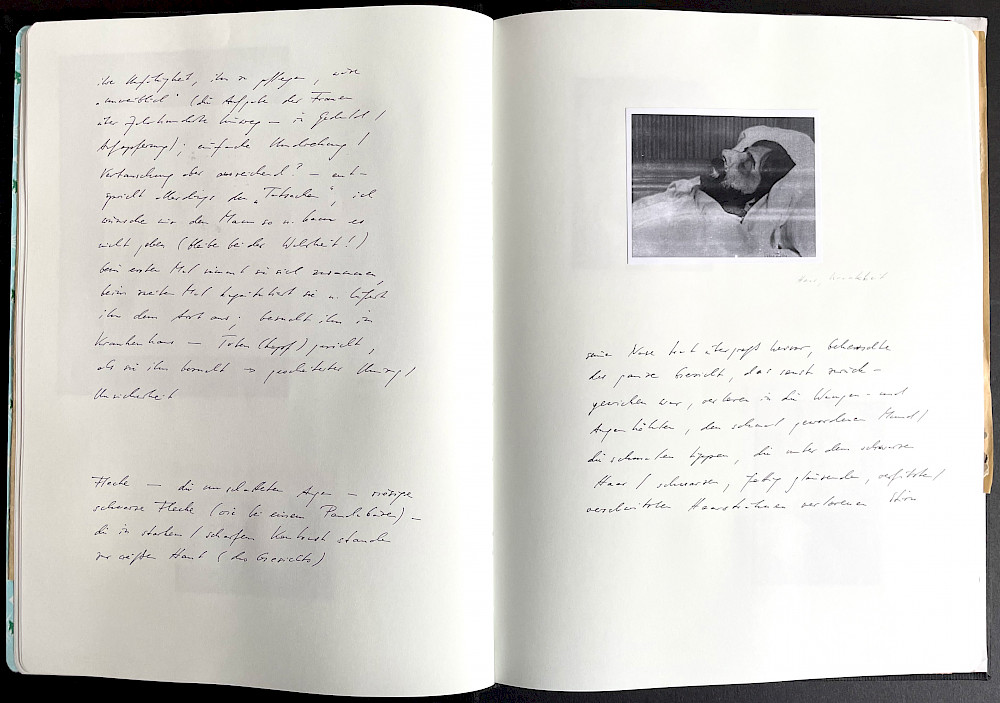 ihre Unfähigkeit, ihn zu pflegen, wäre
„unweiblich“ (die Aufgabe der Frauen
über Jahrhunderte hinweg – in Geduld /
Aufopferung); einfache Umdrehung /
Vertauschung aber ausreichend? – ent-
spricht allerdings den „Tatsachen“, ich
wünsche mir den Mann so u. kann es
nicht geben (bleibe bei der Wahrheit!)
beim ersten Mal nimmt sie sich zusammen,
beim zweiten Mal kapituliert sie u. liefert
ihn dem Arzt aus; besucht ihn im
Krankenhaus – Toten(kopf)gesicht,
als sie ihn besucht → gescheiterter
Unsicherheit
Flecke – die umschatteten Augen – riesige
schwarze Flecke (wie bei einem Pandabären) –
die in starkem / scharfem Kontrast standen
zur weißen Haut (des Gesichts)
seine Nase trat übergroß hervor, beherrschte
das ganze Gesicht, das sonst zurück-
gewichen war, verloren in die Wangen- und
Augenhöhlen, den schmal gewordenen Mund /
die schmalen Lippen, die unter dem schwarzen
Haar / schwarzen, fettig glänzenden, verfilzten /
verschwitzten Haarsträhnen verlorene Stirn